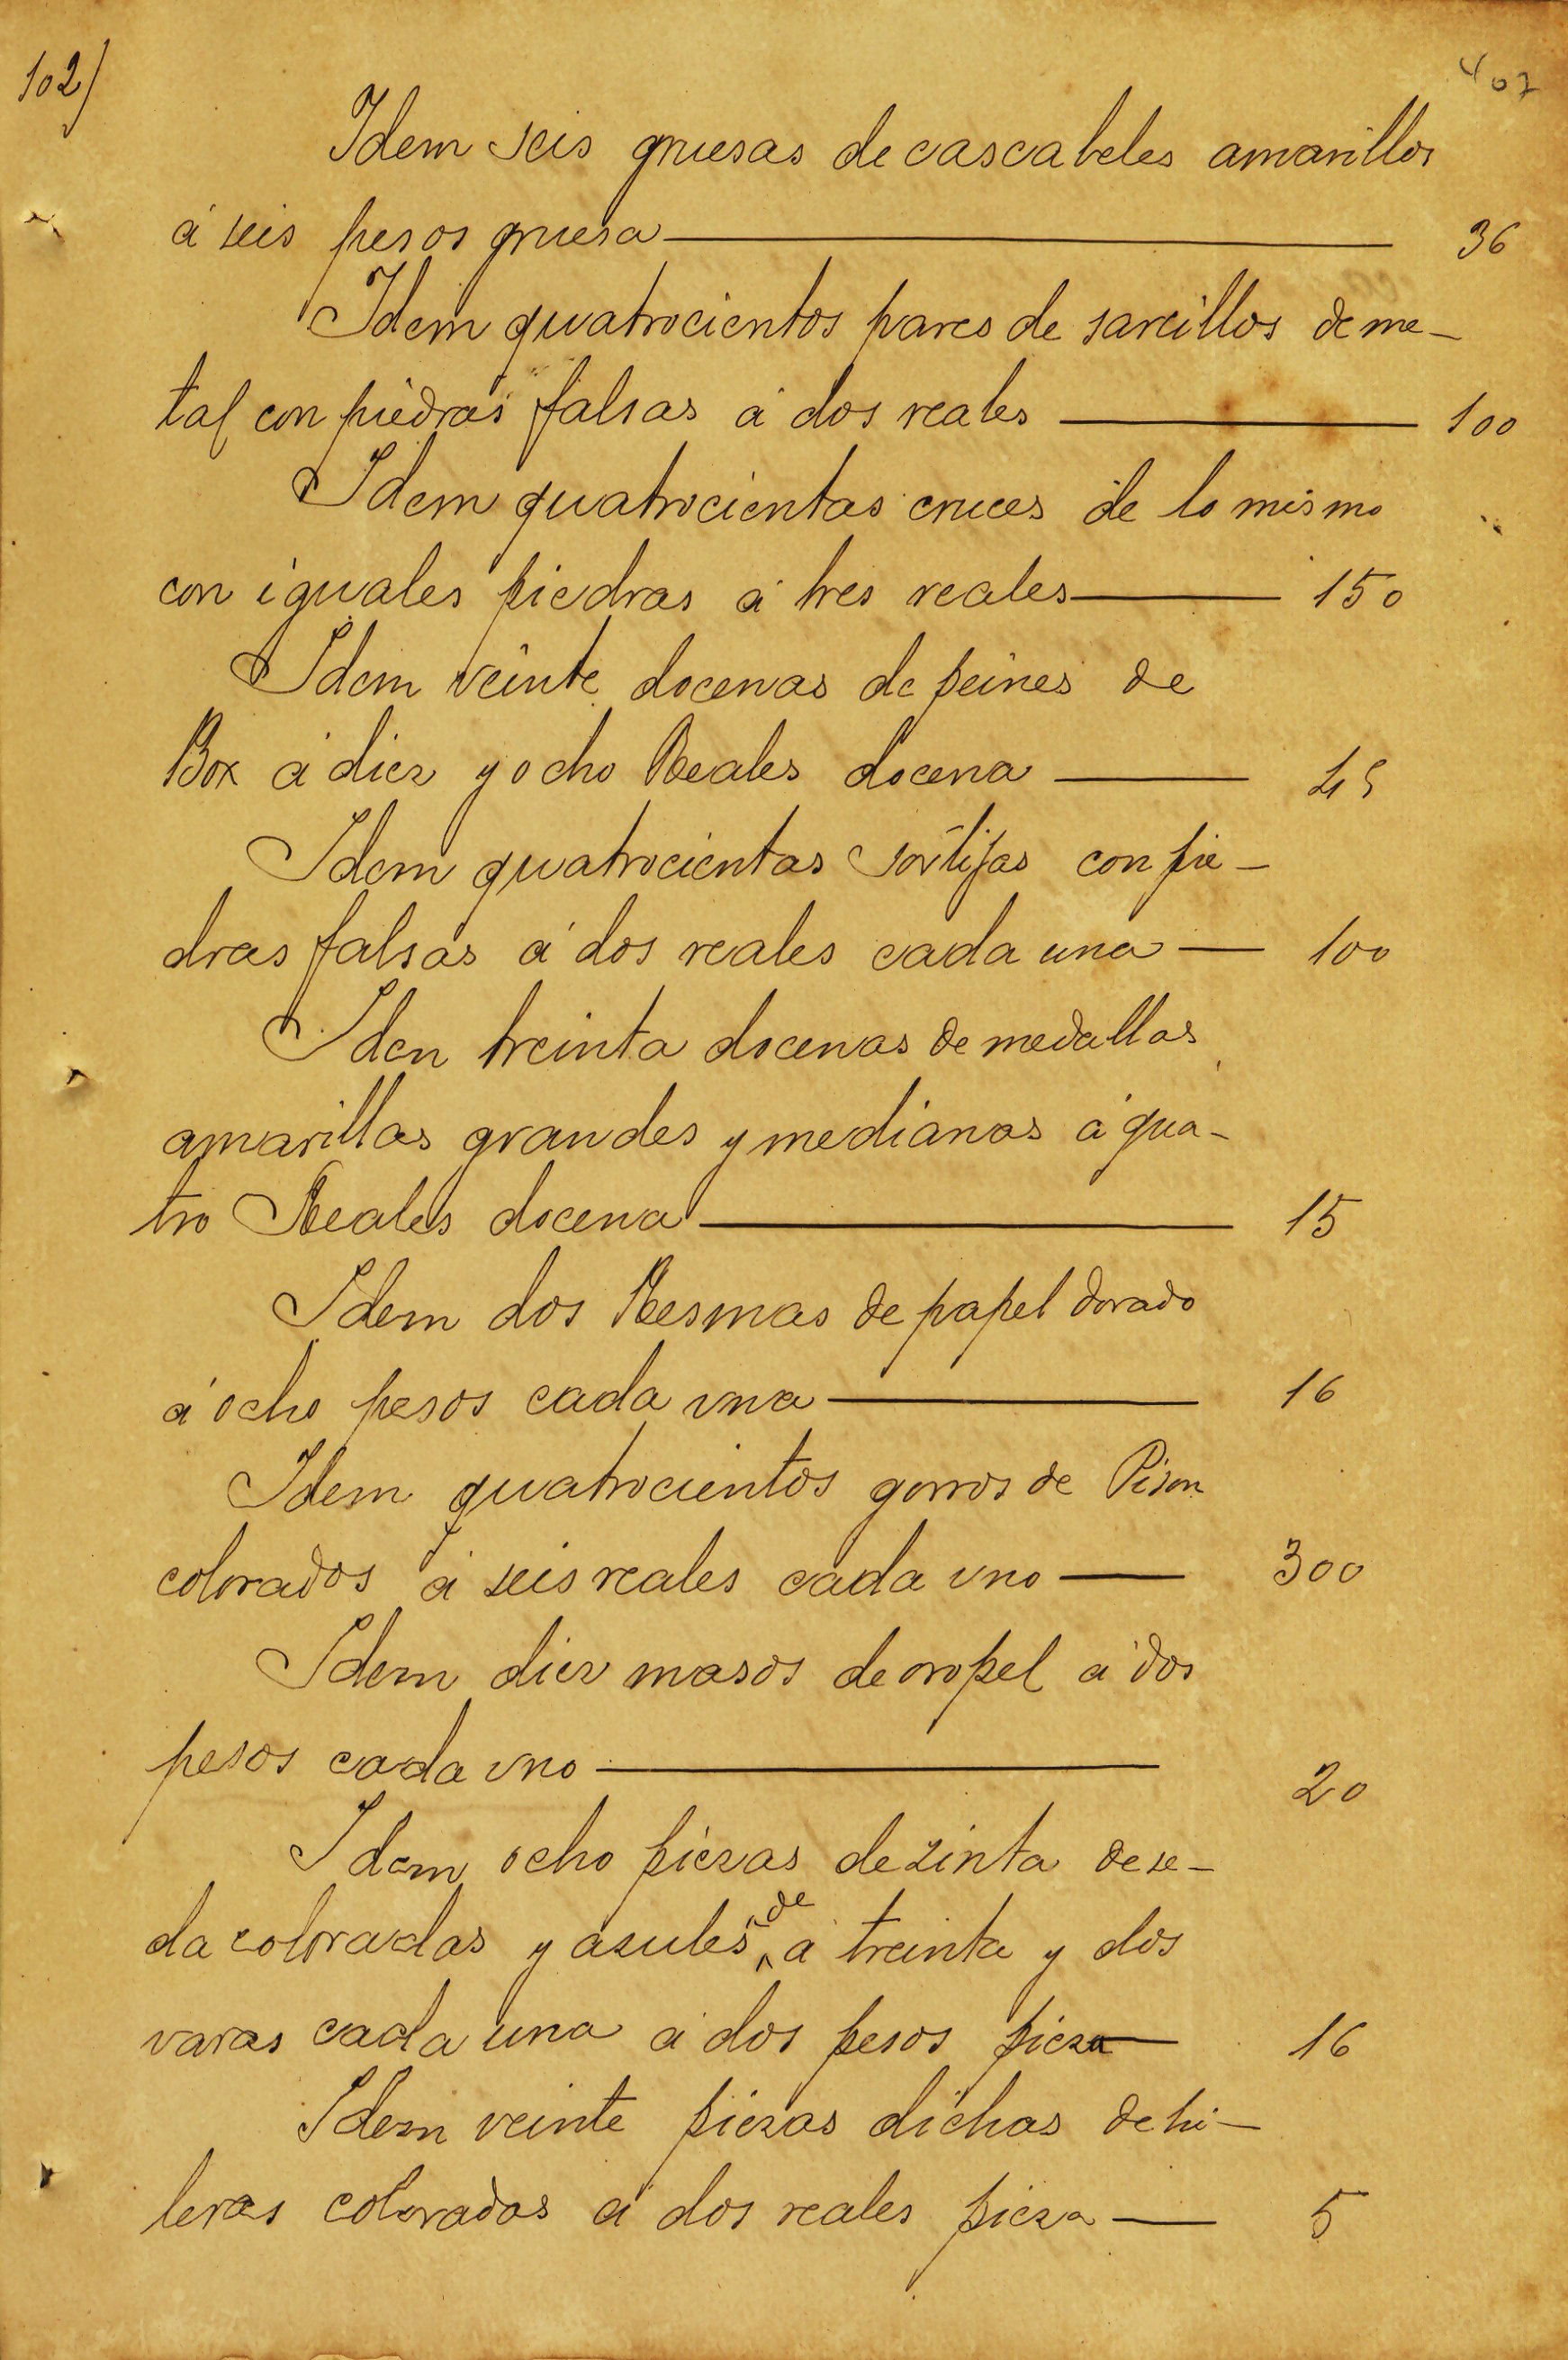 102)
407
Idem seis gruesas de cascabeles amarillos
á seis pesos gruesa — 36
Idem quatrocientos pares de sarcillos de me-
tal con piedras falsas á dos reales — 100
Idem quatrocientas cruces de lo mismo
con iguales piedras á tres reales — 150
Idem veinte docenas de peines de
Box á diez y ocho Reales docena — 45
Idem quatrocientas sortijas con pie-
dras falsas á dos reales cada una — 100
Iden treinta docenas de medallas
amarillas grandes y medianas á qua-
tro Reales docena — 15
Idem dos Resmas de papel dorado
á ocho pesos cada vna — 16
Idem quatrocientos gorros de Pison
colorados á seis reales cada vno — 300
Idem diez masos de oropel á dos
pesos cada vno — 20
Idem ocho piezas de zinta de se-
da coloradas y asules de á treinta y dos
varas cada una á dos pesos pieza — 16
Idem veinte piezas dichas de hi-
leras coloradas á dos reales pieza — 5